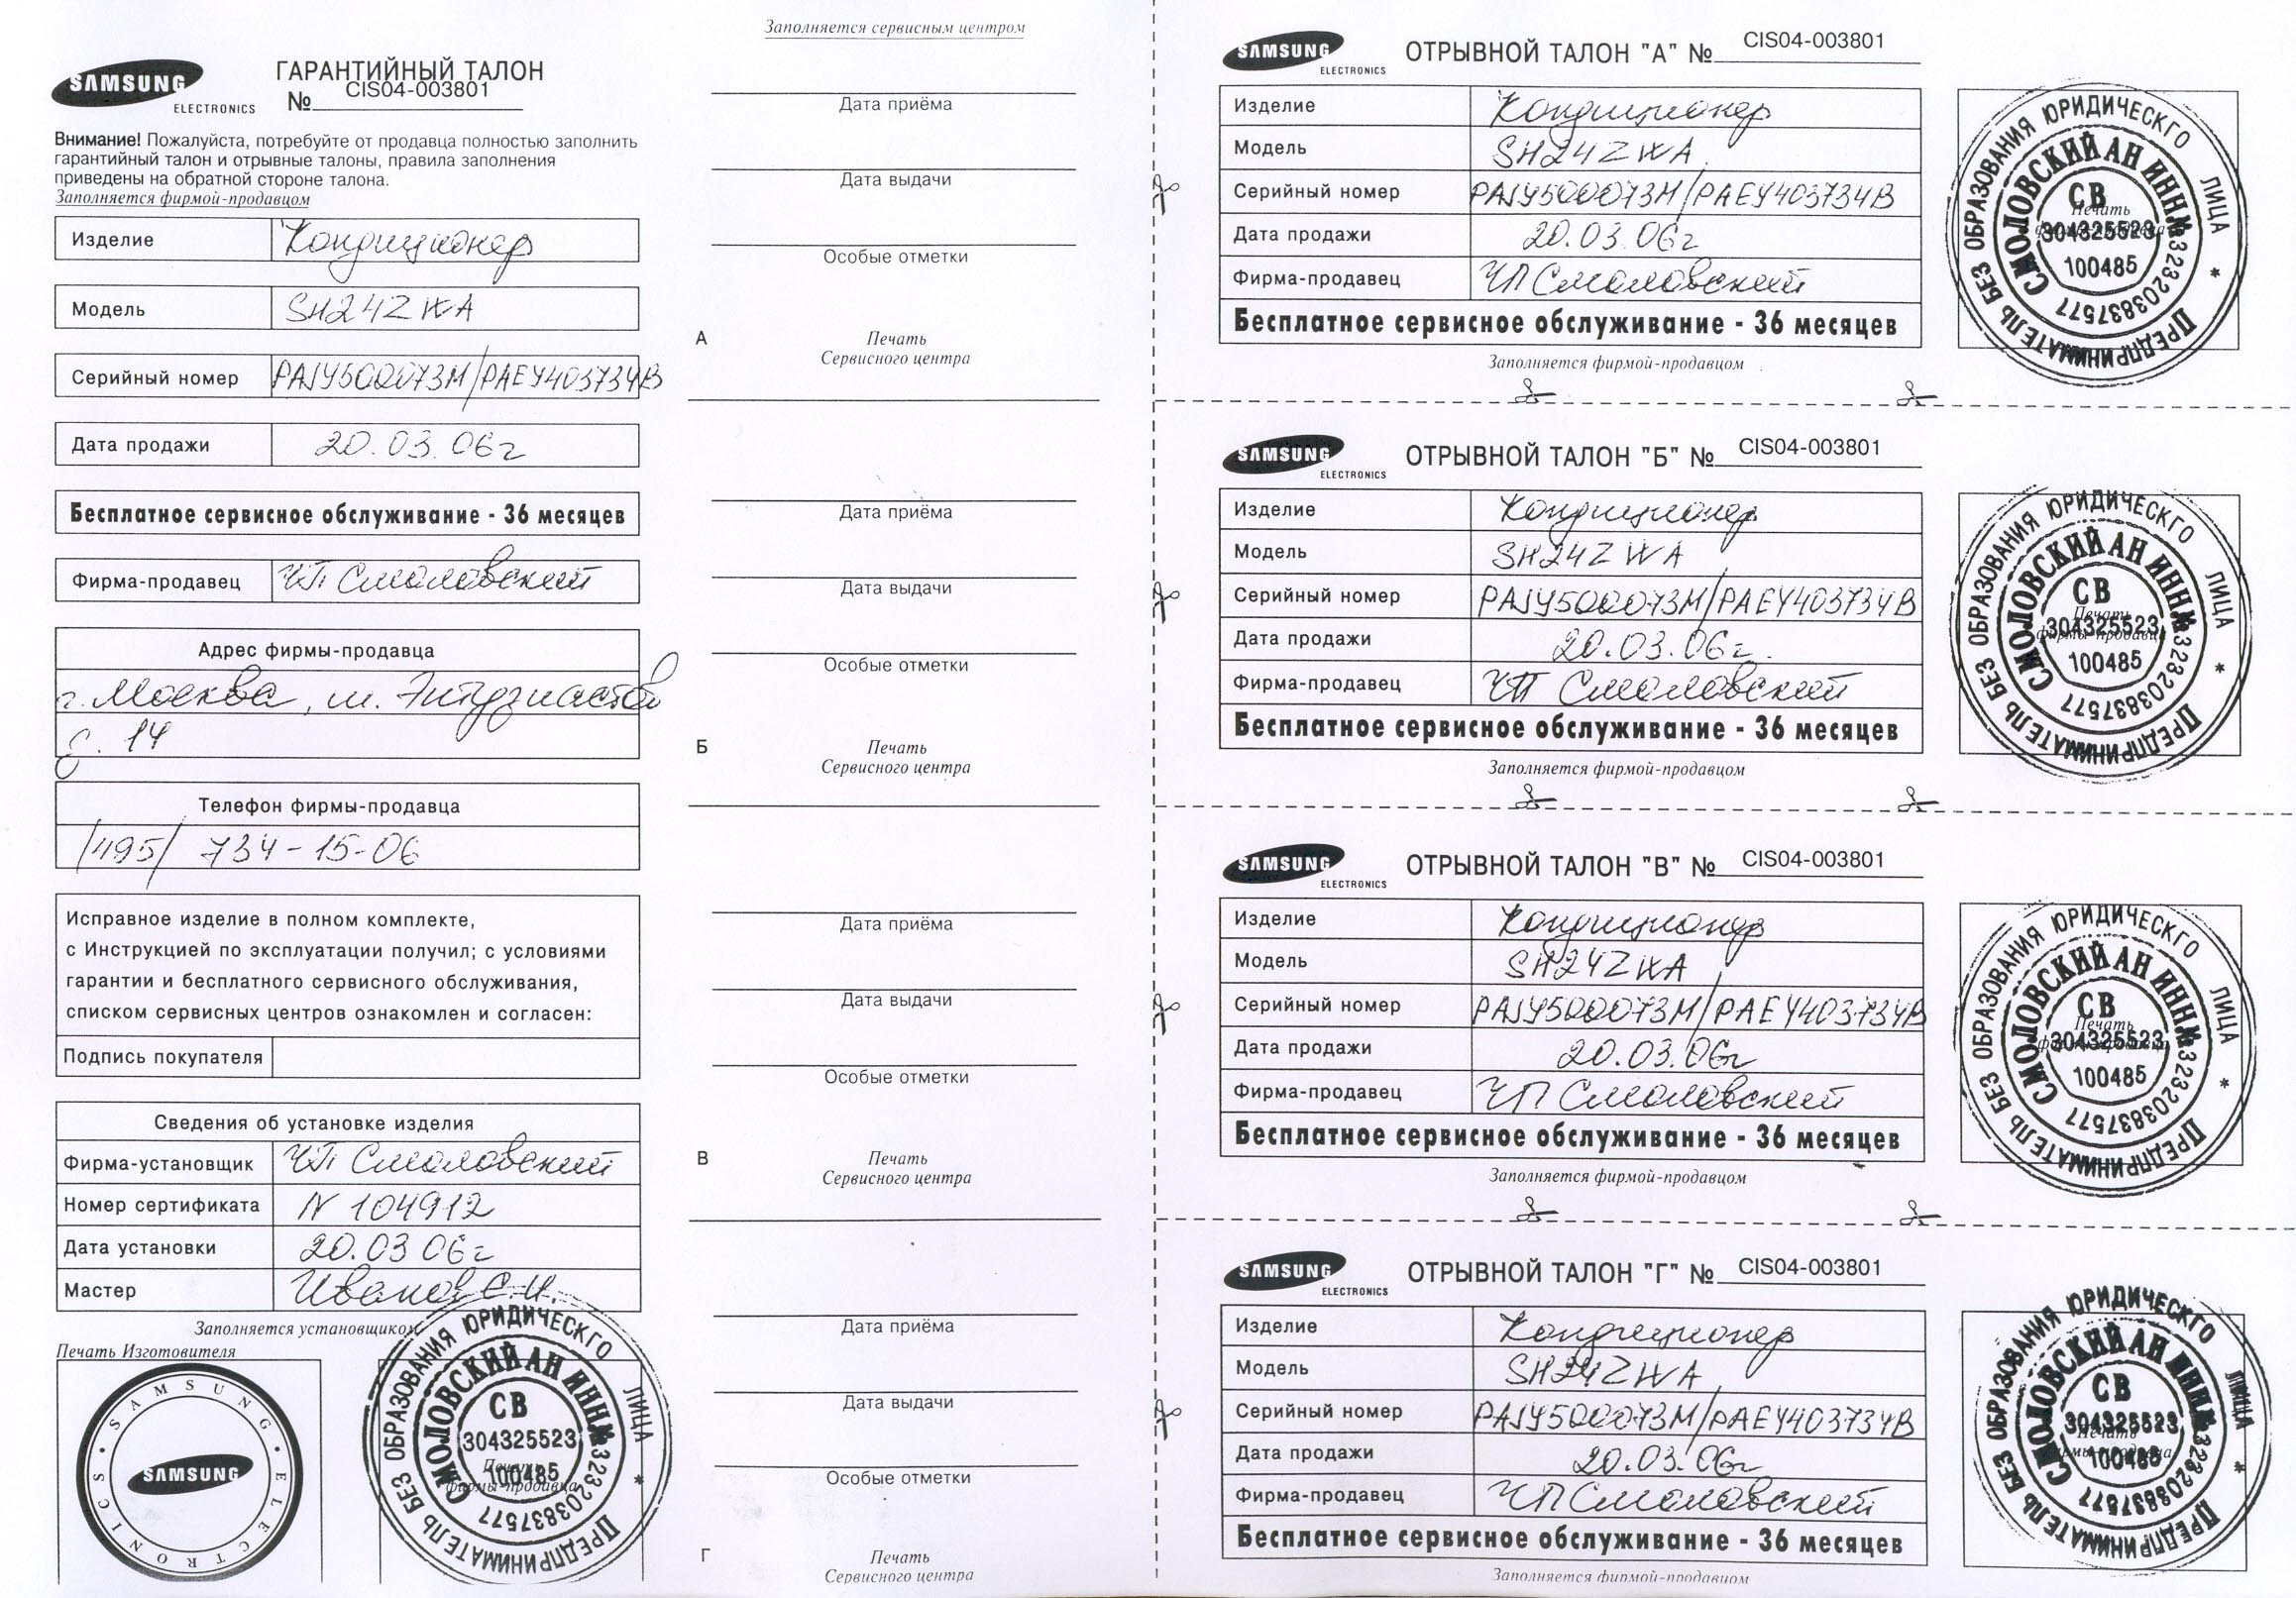 SAMSUNG
ELECTRONICS
ГАРАНТИЙНЫЙ ТАЛОН
№ CIS04-003801
Внимание! Пожалуйста, потребуйте от продавца полностью заполнить
гарантийный талон и отрывные талоны, правила заполнения
приведены на обратной стороне талона.
Заполняется фирмой-продавцом
Изделие Кондиционер
Модель SH24ZWA
Серийный номер PAJY500073M/PAEY403734B
Дата продажи 20.03.06г
Бесплатное сервисное обслуживание - 36 месяцев
Фирма-продавец ЧП Смоловский
Адрес фирмы-продавца
г. Москва, ш. Энтузиастов
д. 14
Телефон фирмы-продавца
/495/ 734-15-06
Исправное изделие в полном комплекте,
с Инструкцией по эксплуатации получил; с условиями
гарантии и бесплатного сервисного обслуживания,
списком сервисных центров ознакомлен и согласен:
Подпись покупателя
Сведения об установке изделия
Фирма-установщик ЧП Смоловский
Номер сертификата N 104912
Дата установки 20.03 06г
Мастер Иванов С.И.
Заполняется установщиком
Печать Изготовителя
SAMSUNG ELECTRONICS
SAMSUNG
ПРЕДПРИНИМАТЕЛЬ БЕЗ ОБРАЗОВАНИЯ ЮРИДИЧЕСКГО ЛИЦА *
СМОЛОВСКИЙ АН ИНН 323203837577
СВ
304325523
100485
Печать
фирмы-продавца
Заполняется сервисным центром
Дата приёма
Дата выдачи
Особые отметки
А
Печать
Сервисного центра
Дата приёма
Дата выдачи
Особые отметки
Б
Печать
Сервисного центра
Дата приёма
Дата выдачи
Особые отметки
В
Печать
Сервисного центра
Дата приёма
Дата выдачи
Особые отметки
Г
Печать
Сервисного центра
SAMSUNG
ELECTRONICS
ОТРЫВНОЙ ТАЛОН "А" № CIS04-003801
Изделие Кондиционер
Модель SH24ZWA
Серийный номер PAJY500073M/PAEY403734B
Дата продажи 20.03.06г
Фирма-продавец ЧП Смоловский
Бесплатное сервисное обслуживание - 36 месяцев
Заполняется фирмой-продавцом
ПРЕДПРИНИМАТЕЛЬ БЕЗ ОБРАЗОВАНИЯ ЮРИДИЧЕСКГО ЛИЦА *
СМОЛОВСКИЙ АН ИНН 323203837577
СВ
Печать
фирмы-продавца
304325523
100485
SAMSUNG
ELECTRONICS
ОТРЫВНОЙ ТАЛОН "Б" № CIS04-003801
Изделие Кондиционер
Модель SH24ZWA
Серийный номер PAJY500073M/PAEY403734B
Дата продажи 20.03.06г.
Фирма-продавец ЧП Смоловский
Бесплатное сервисное обслуживание - 36 месяцев
Заполняется фирмой-продавцом
ПРЕДПРИНИМАТЕЛЬ БЕЗ ОБРАЗОВАНИЯ ЮРИДИЧЕСКГО ЛИЦА *
СМОЛОВСКИЙ АН ИНН 323203837577
СВ
Печать
фирмы-продавца
304325523
100485
SAMSUNG
ELECTRONICS
ОТРЫВНОЙ ТАЛОН "В" № CIS04-003801
Изделие Кондиционер
Модель SH24ZWA
Серийный номер PAJY500073M/PAEY403734B
Дата продажи 20.03.06г
Фирма-продавец ЧП Смоловский
Бесплатное сервисное обслуживание - 36 месяцев
Заполняется фирмой-продавцом
ПРЕДПРИНИМАТЕЛЬ БЕЗ ОБРАЗОВАНИЯ ЮРИДИЧЕСКГО ЛИЦА *
СМОЛОВСКИЙ АН ИНН 323203837577
СВ
Печать
фирмы-продавца
304325523
100485
SAMSUNG
ELECTRONICS
ОТРЫВНОЙ ТАЛОН "Г" № CIS04-003801
Изделие Кондиционер
Модель SH24ZWA
Серийный номер PAJY500073M/PAEY403734B
Дата продажи 20.03.06г
Фирма-продавец ЧП Смоловский
Бесплатное сервисное обслуживание - 36 месяцев
Заполняется фирмой-продавцом
ПРЕДПРИНИМАТЕЛЬ БЕЗ ОБРАЗОВАНИЯ ЮРИДИЧЕСКГО ЛИЦА *
СМОЛОВСКИЙ АН ИНН 323203837577
СВ
304325523
Печать
фирмы-продавца
100485